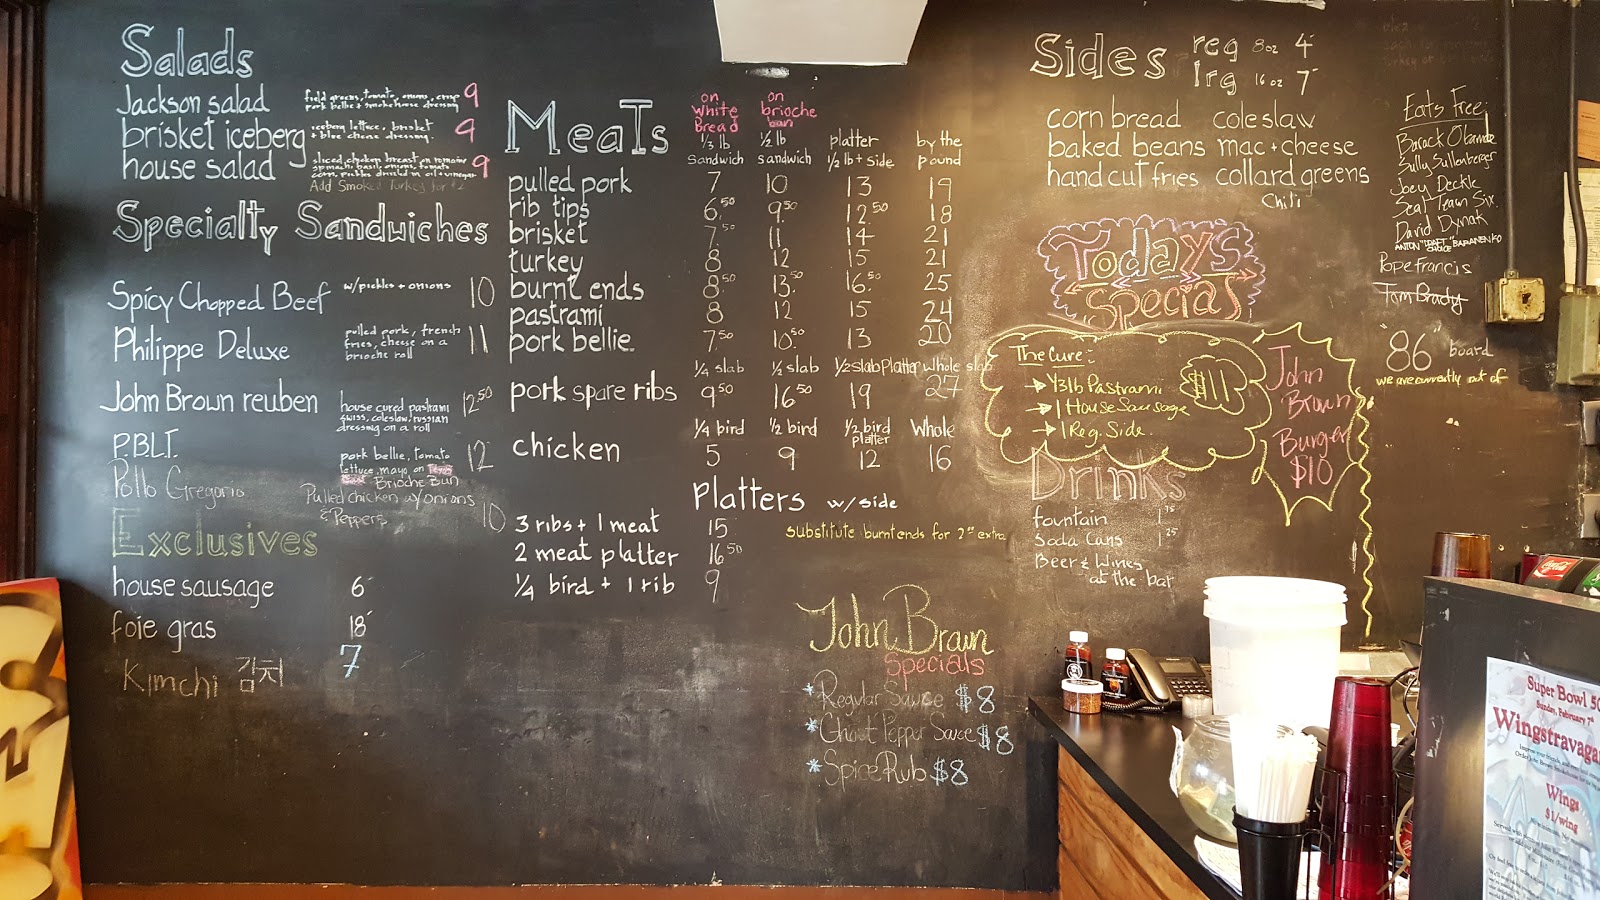 Salads
Jackson salad field greens, tomato, onions, crisp pork bellie & smokehouse dressing 9
brisket iceberg iceberg lettuce, brisket & blue cheese dressing. 9
house salad sliced chicken breast on romaine spinach, basil, onions, tomato corn, pickles drizzled in oil & vinegar 9
Add Smoked Turkey for $2
Specialty Sandwiches
Spicy Chopped Beef w/pickles + onions 10
Philippe Deluxe pulled pork, french fries, cheese on a brioche roll 11
John Brown reuben house cured pastrami swiss, coleslaw, russian dressing on a roll 12.50
P.B.L.T. pork bellie, tomato lettuce, mayo, on Brioche Bun 12
Pollo Gregorio Pulled chicken w/onions & Peppers 10
Exclusives
house sausage 6
foie gras 18
Kimchi 김치 7
Meats
on White Bread 1/3 lb sandwich
on brioche bun 1/2 lb sandwich
platter 1/2 lb + side
by the pound
pulled pork 7 10 13 19
rib tips 6.50 9.50 12.50 18
brisket 7.50 11 14 21
turkey 8 12 15 21
burnt ends 8.50 13.50 16.50 25
pastrami 8 12 15 24
pork bellie 7.50 10.50 13 20
1/4 slab 1/2 slab 1/2 slab Platter whole slab
pork spare ribs 9.50 16.50 19 27
1/4 bird 1/2 bird 1/2 bird platter Whole
chicken 5 9 12 16
Platters w/side
3 ribs + 1 meat 15
substitute burnt ends for 2.00 extra
2 meat platter 16.50
1/4 bird + 1 rib 9
John Brown
Specials
*Regular Sauce $8
*Ghost Pepper Sauce $8
*Spice Rub $8
Sides reg 8 oz 4
lrg 16 oz 7
corn bread coleslaw
baked beans mac + cheese
hand cut fries collard greens
Chili
Todays
Special
The Cure:
→ 1/3 lb Pastrami
→ 1 House Sausage
→ 1 Reg. Side.
John
Brown
Burger
$10
Drinks
fountain 1.75
Soda Cans 1.25
Beer & Wines
at the bar
Eats Free:
Barack Obama
Sully Sullenberger
Joey Deckle
Seal Team Six.
David Dynak
ANTON "DRAFT CHOICE" BARANENKO
Pope Francis
Tom Brady
"86" board
we are currently out of
Coca-Cola
Super Bowl 50
Sunday, February 7th
Wingstravaga
Wings
$1/wing